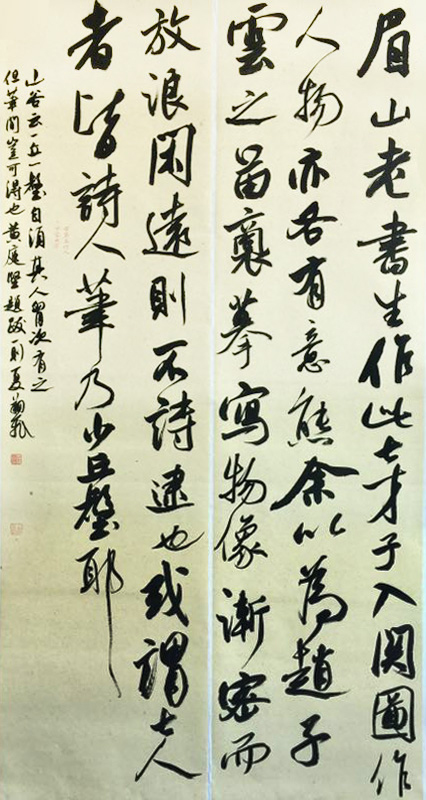 眉山老書生作此七才子入関圖作
人物亦各有意態余以為趙子
雲之苗裔摹寫物像漸密而
放浪閑遠則不詩逮也或謂七人
者皆詩人筆乃少丘壑耶
山谷云一丘一壑自須其人胷次有之
但筆間豈可得也黄庭堅題跋一則夏